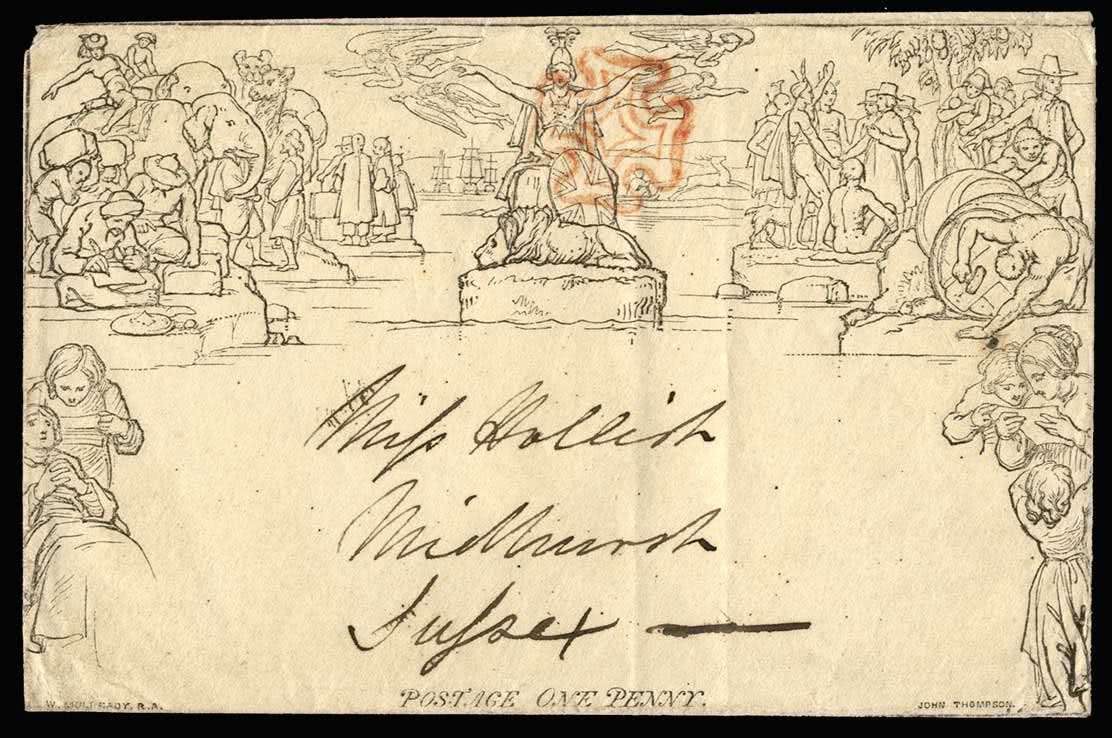 Miss Hollist
Midhurst
Sussex —
POSTAGE ONE PENNY.
W. MULREADY, R.A.
JOHN THOMPSON.